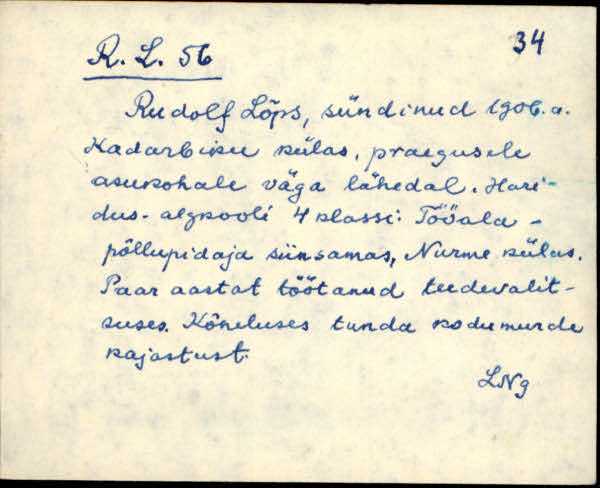 R. L. 56
34
Rudolf Lõps, sündinud 1906. a.
Kadarbiku külas, praegusele
asukohale väga lähedal. Hari-
dus - algkooli 4 klassi. Tööala -
põllupidaja siinsamas, Nurme külas.
Paar aastat töötanud teedevalit-
suses. Kõneluses tunda kodumurde
kajastust.
LNg